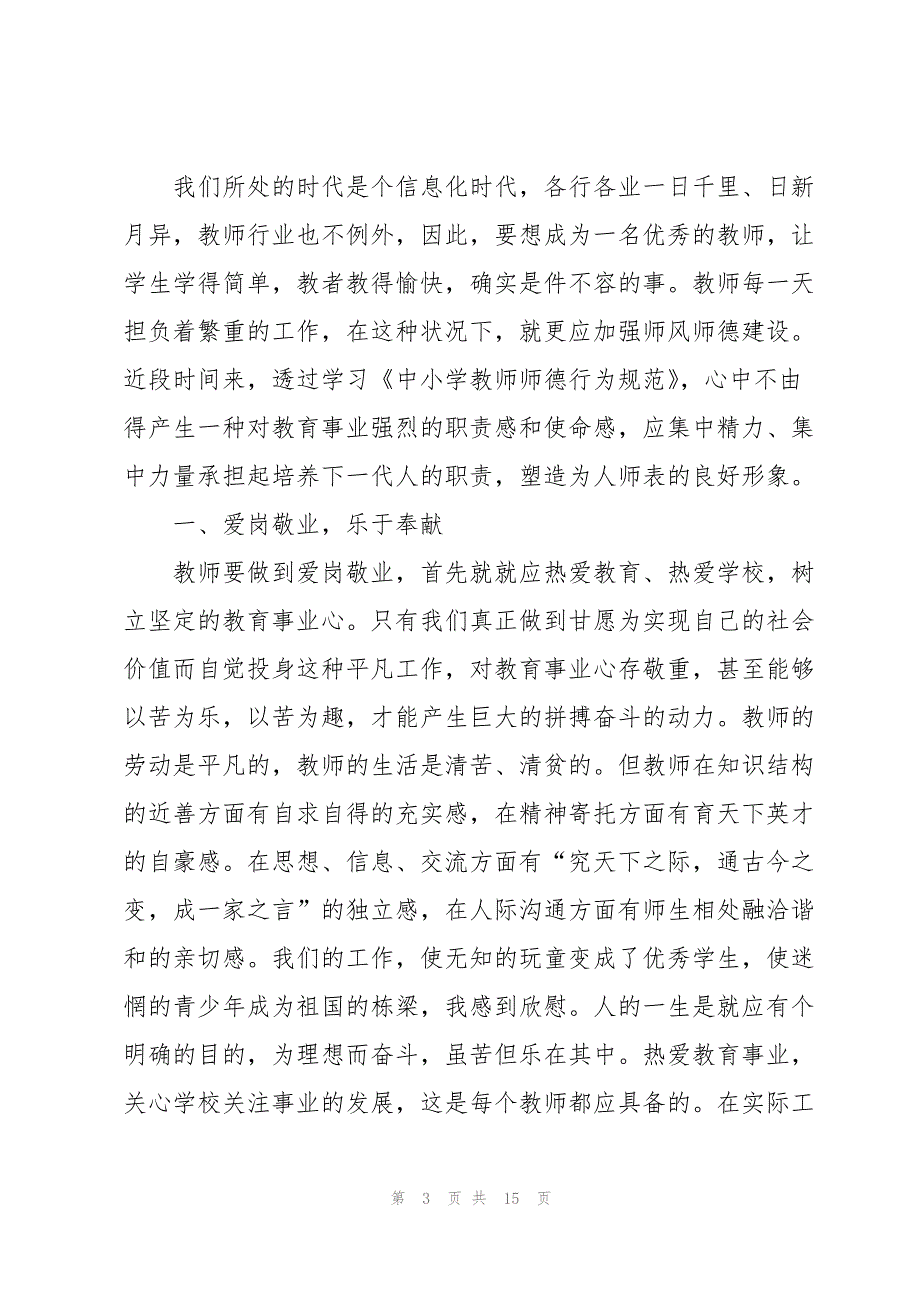 我们所处的时代是个信息化时代，各行各业一日千里、日新
月异，教师行业也不例外，因此，要想成为一名优秀的教师，让
学生学得简单，教者教得愉快，确实是件不容的事。教师每一天
担负着繁重的工作，在这种状况下，就更应加强师风师德建设。
近段时间来，透过学习《中小学教师师德行为规范》，心中不由
得产生一种对教育事业强烈的职责感和使命感，应集中精力、集
中力量承担起培养下一代人的职责，塑造为人师表的良好形象。
一、爱岗敬业，乐于奉献
教师要做到爱岗敬业，首先就就应热爱教育、热爱学校，树
立坚定的教育事业心。只有我们真正做到甘愿为实现自己的社会
价值而自觉投身这种平凡工作，对教育事业心存敬重，甚至能够
以苦为乐，以苦为趣，才能产生巨大的拼搏奋斗的动力。教师的
劳动是平凡的，教师的生活是清苦、清贫的。但教师在知识结构
的近善方面有自求自得的充实感，在精神寄托方面有育天下英才
的自豪感。在思想、信息、交流方面有“究天下之际，通古今之
变，成一家之言”的独立感，在人际沟通方面有师生相处融洽谐
和的亲切感。我们的工作，使无知的玩童变成了优秀学生，使迷
惘的青少年成为祖国的栋梁，我感到欣慰。人的一生是就应有个
明确的目的，为理想而奋斗，虽苦但乐在其中。热爱教育事业，
关心学校关注事业的发展，这是每个教师都应具备的。在实际工
第 3 页 共 15 页